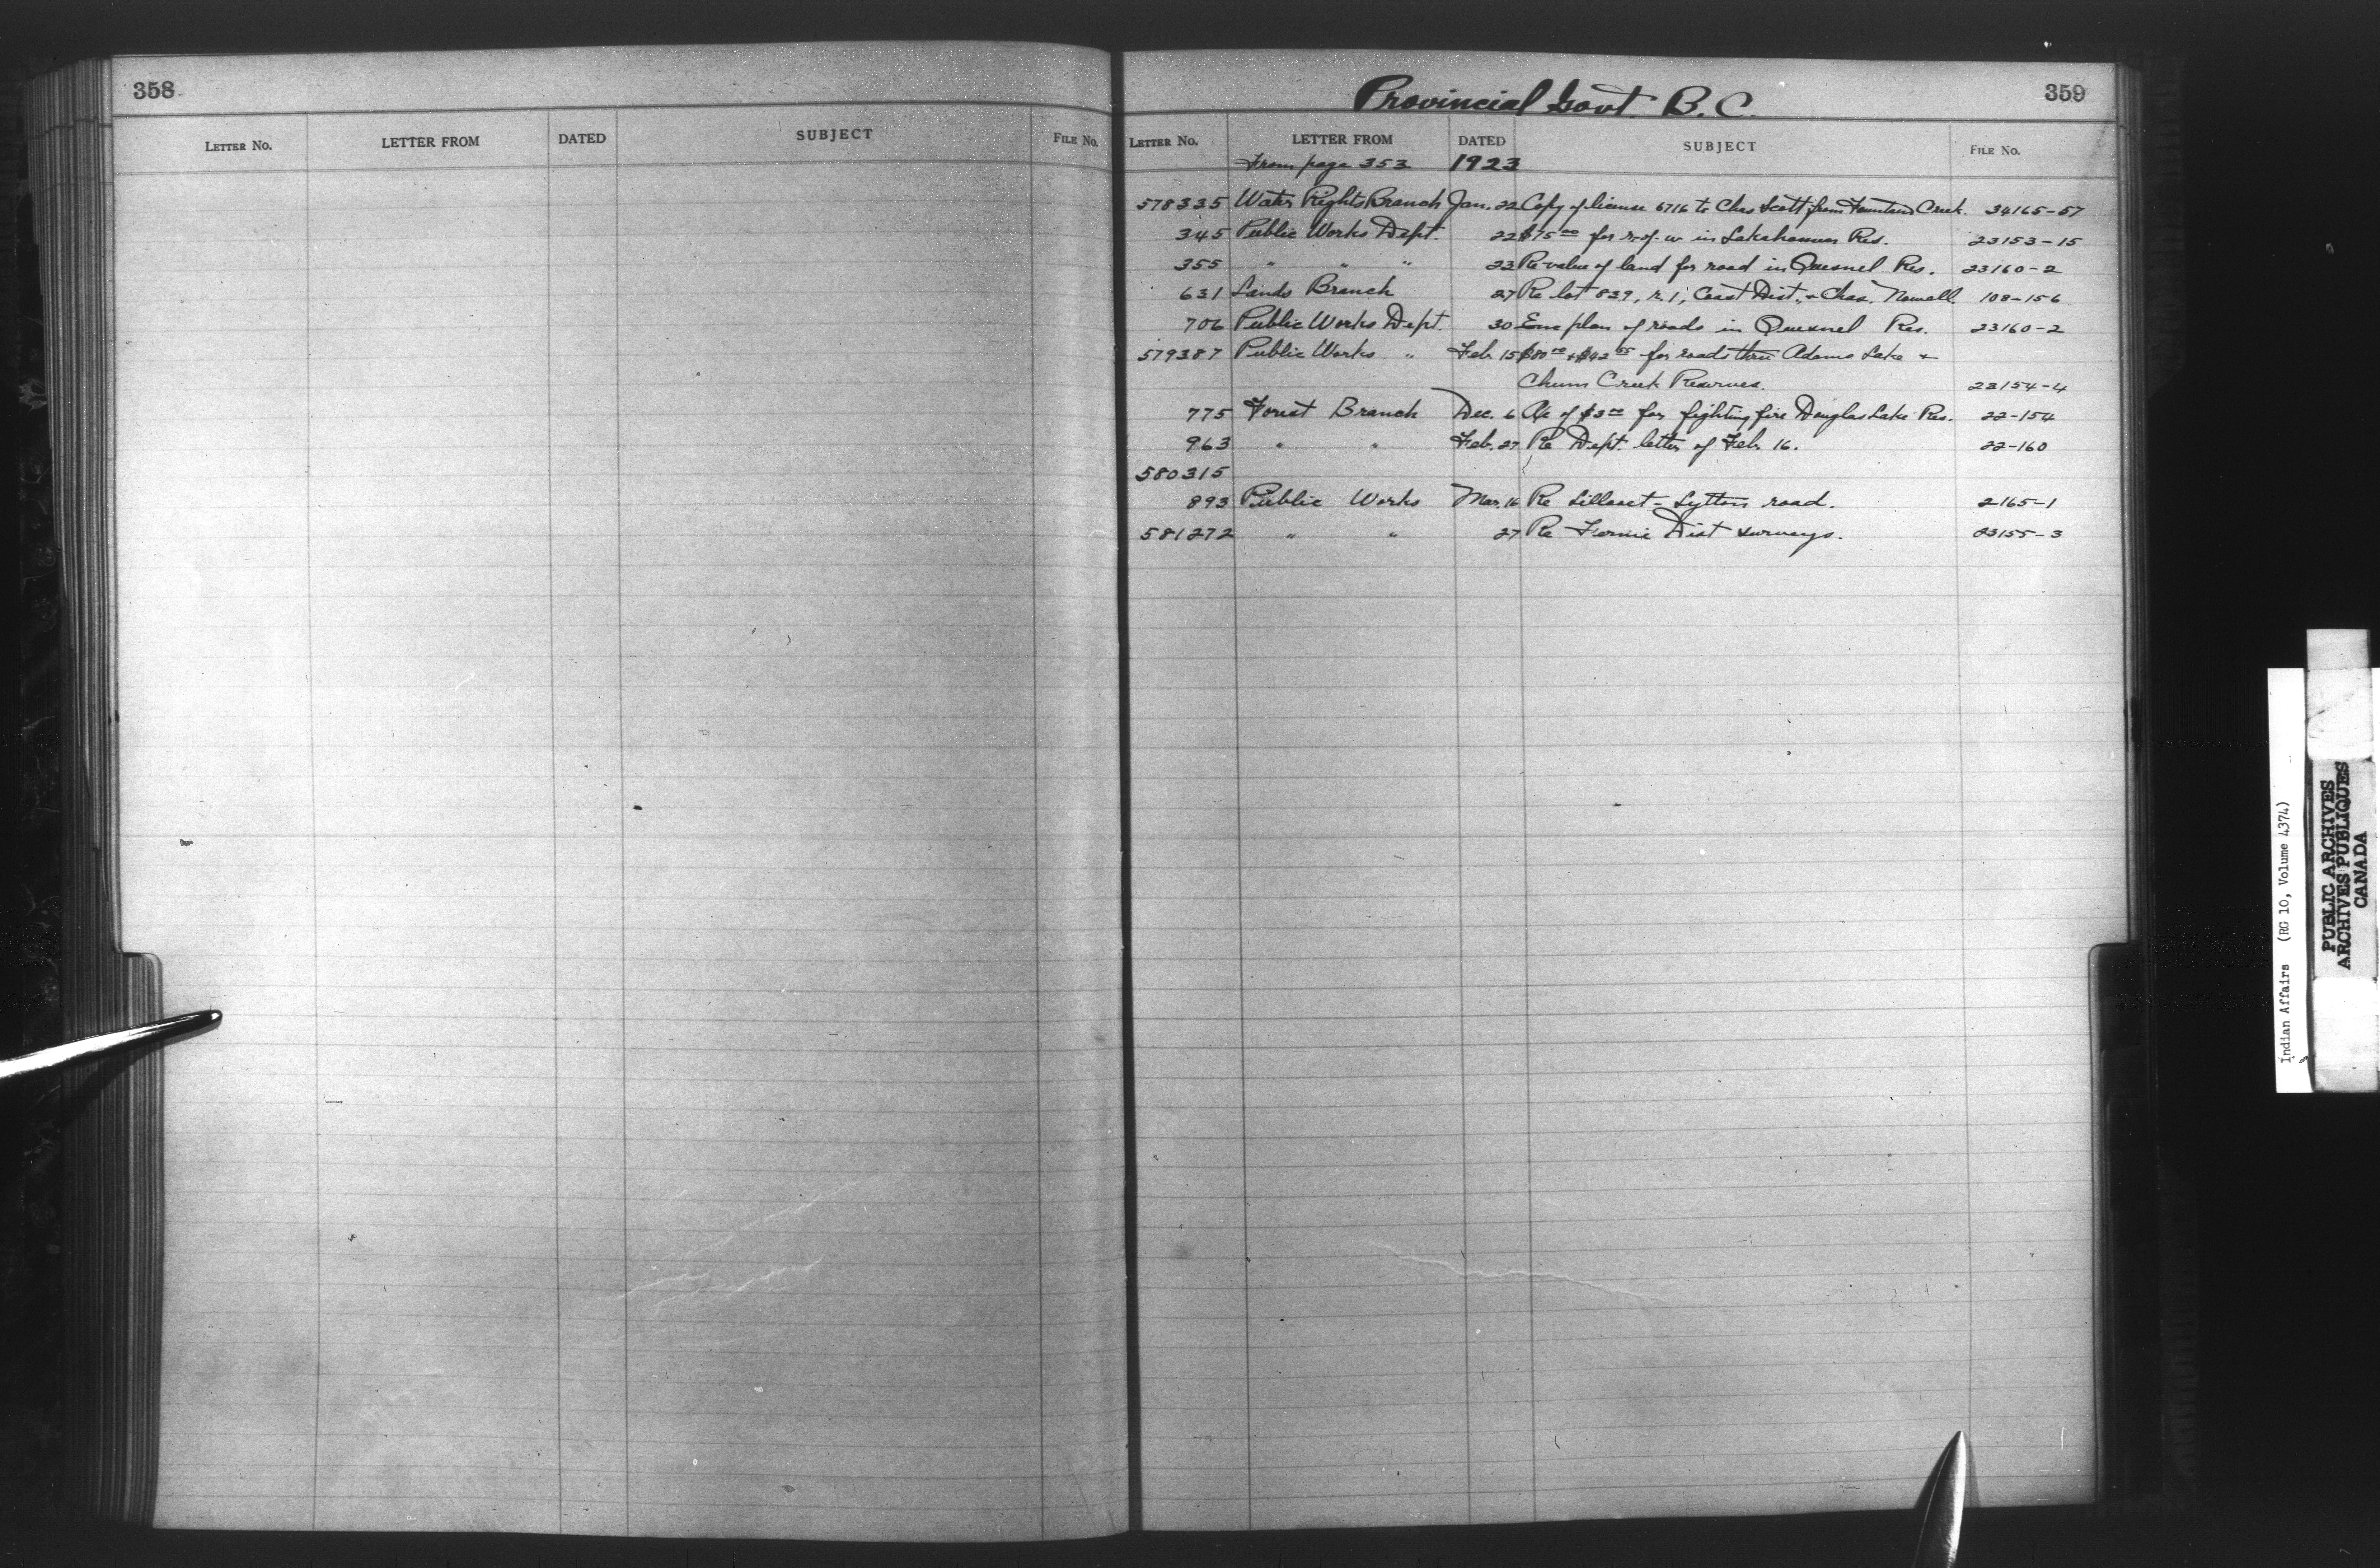 358
LETTER NO. LETTER FROM DATED SUBJECT FILE NO.
Provincial Govt. B.C. 359
LETTER NO. LETTER FROM DATED SUBJECT FILE NO.
From page 353 1923
578335 Water Rights Branch Jan. 22 Copy of license 6716 to Chas Scott from Fountain Creek. 34165-57
345 Public Works Dept. 22 $75.00 for r. of. w in Lakahamen Res. 23153-15
355 " " " 23 Re value of land for road in Quesnel Res. 23160-2
631 Lands Branch 27 Re lot 839, r. 1, Coast Dist., + Chas. Nowell. 108-156
706 Public Works Dept. 30 Enc plan of roads in Quesnel Res. 23160-2
579387 Public Works " Feb. 15 for roads thru Adams Lake +
Chum Creek Reserves. 23154-4
775 Forest Branch Dec. 6 A/c of $3.00 for fighting fire Douglas Lake Res. 22-154
963 " " Feb. 27 Re Dept. letter of Feb. 16. 22-160
580315
893 Public Works Mar. 16 Re Lillooet - Lytton road. 2165-1
581272 " " 27 Re Fernie Dist surveys. 23155-3
Indian Affairs (RG 10, Volume 4374)
PUBLIC ARCHIVES
ARCHIVES PUBLIQUES
CANADA